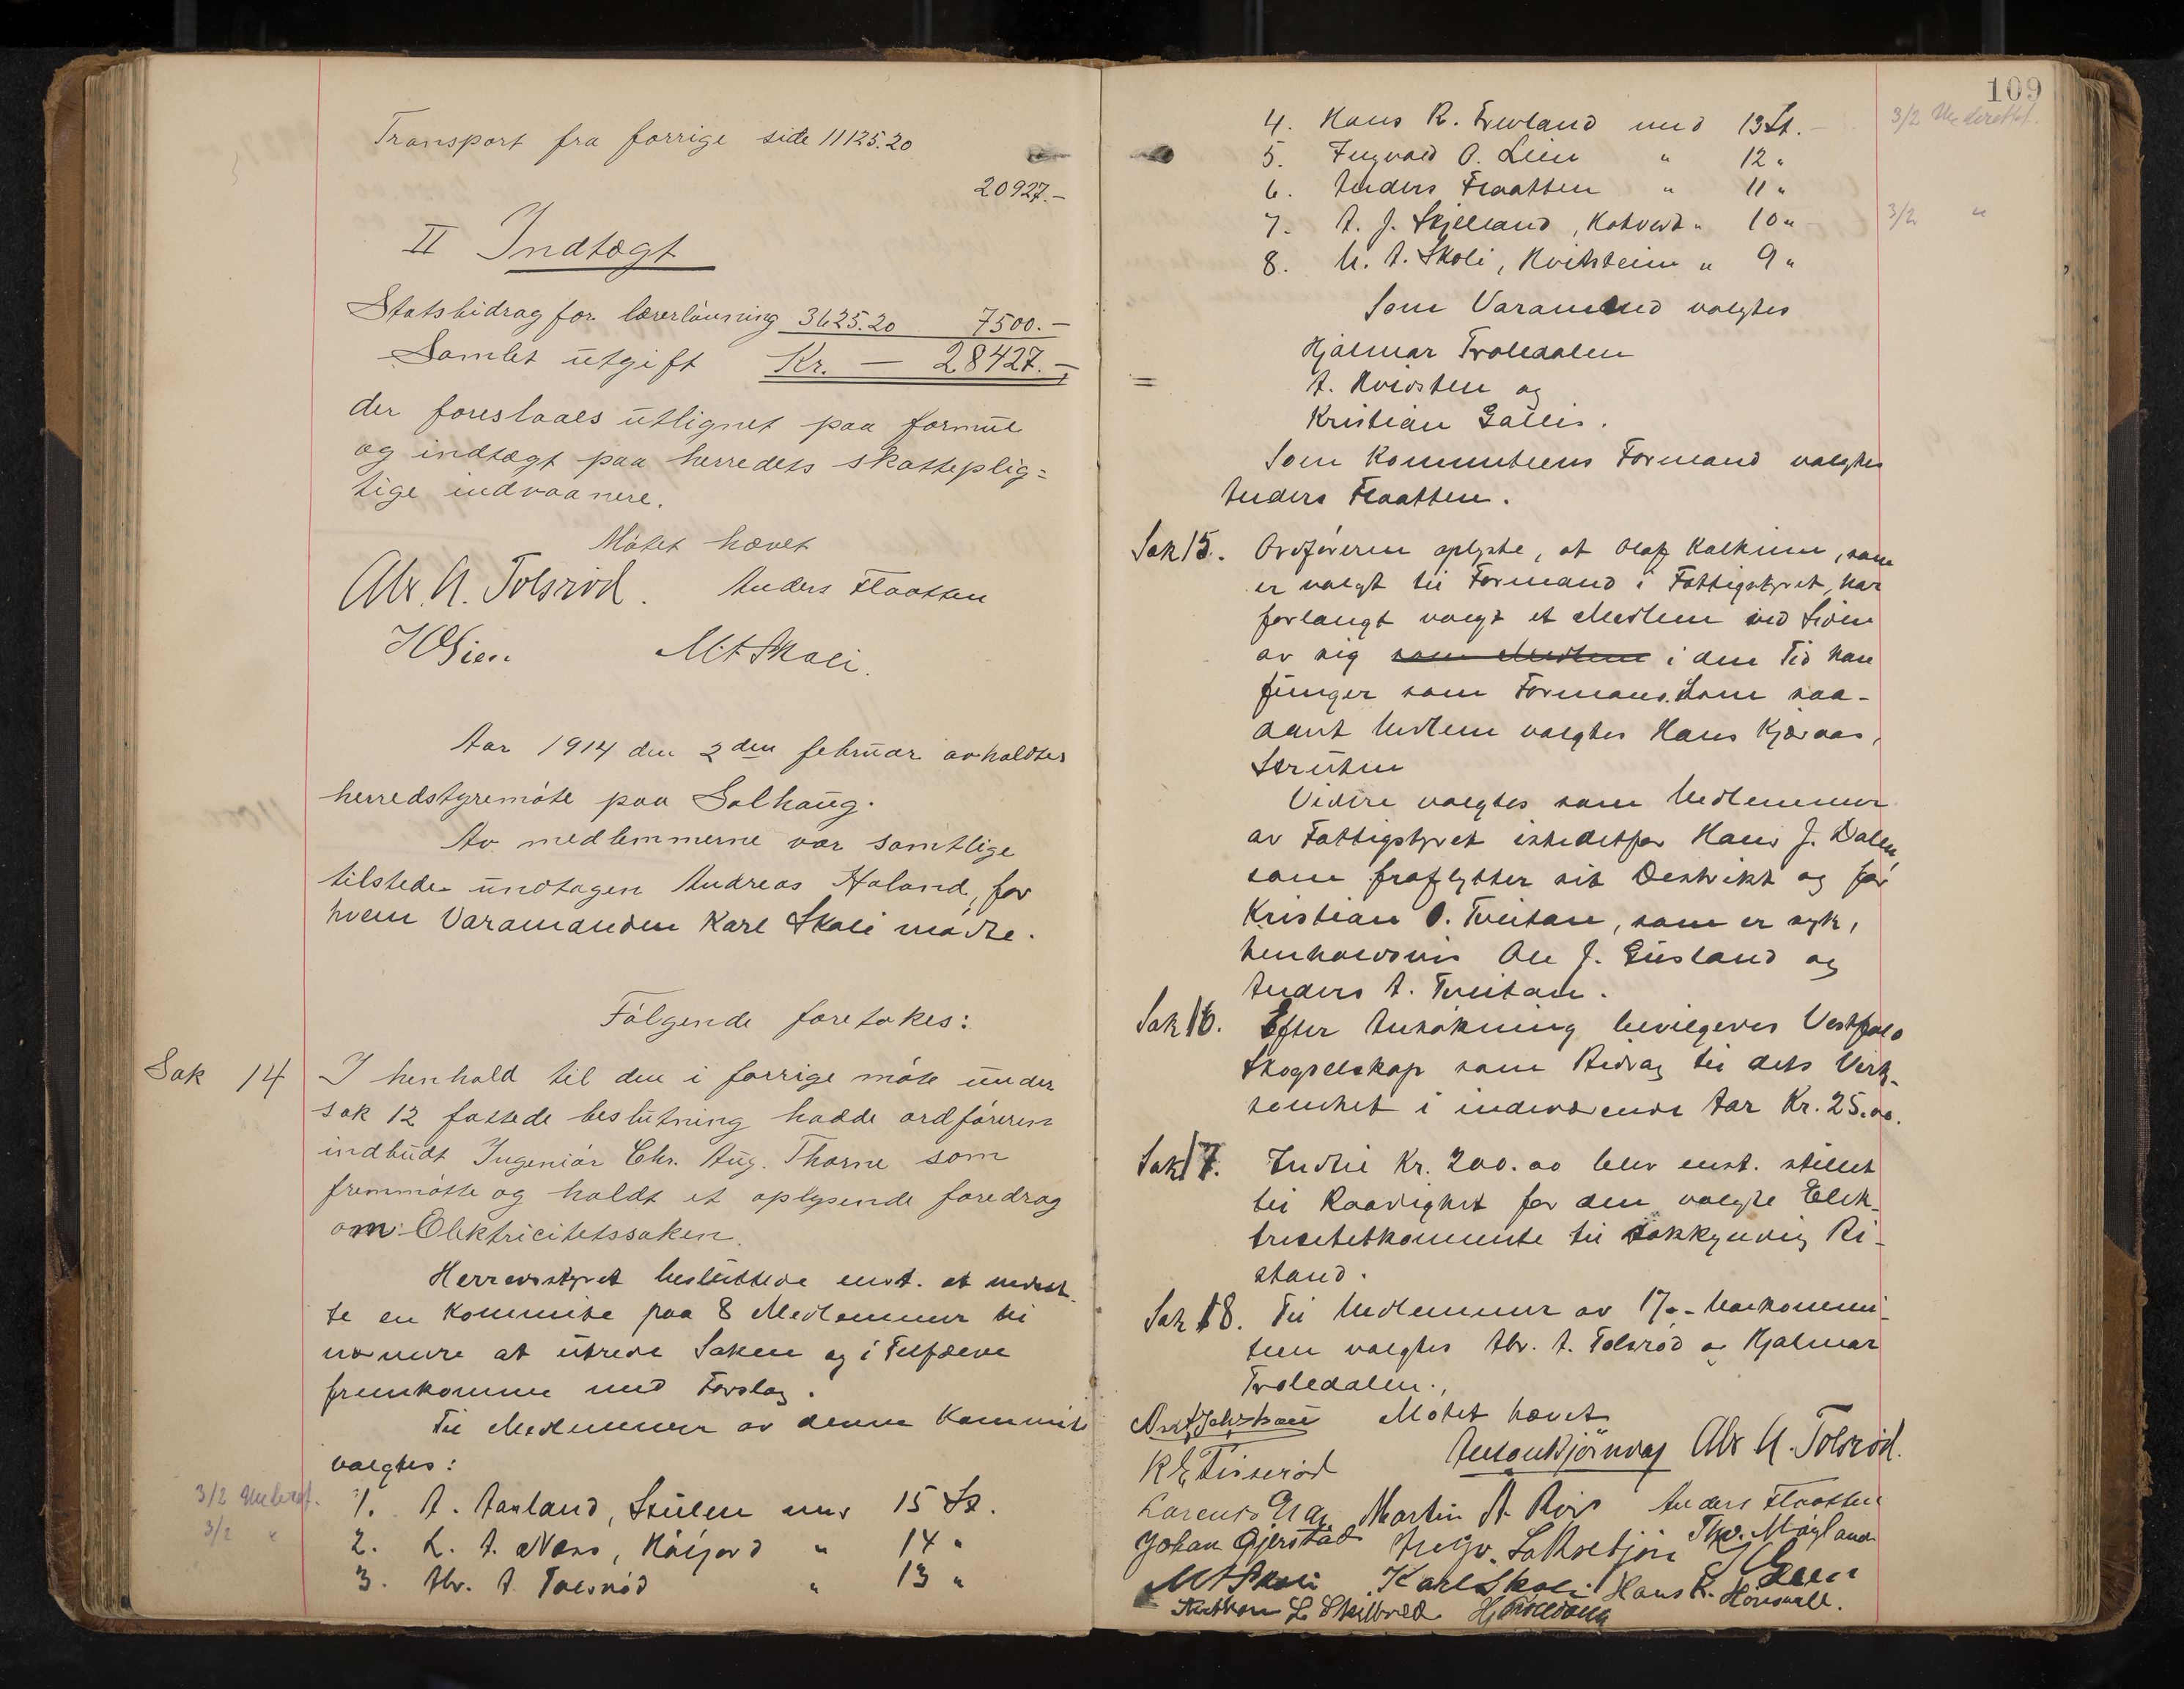 Transport fra forrige side 11125.20
20927.-
II Indtægt
Statsbidrag for lærerlönning 3625.20 7500.-
Samlet utgift Kr. - 28427.-
der foreslaaes utlignet paa formue
og indtægt paa herredets skatteplig=
tige indvaanere.
Mötet hævet
Abr. A. Tolsröd. Anders Flaatten
M A Skoli.
Aar 1914 den 2den februar avholdtes
herredstyremöte paa Solhaug.
Av medlemmerne var samtlige
tilstede undtagen Andreas Holand, for
hvem Varamanden Karl Skoli mödte.
Fölgende foretokes:
Sak 14 I henhold til den i forrige möte under
sak 12 fattede beslutning hadde ordföreren
indbudt Ingeniör Chr. Aug. Thorne som
fremmötte og holdt et oplysende foredrag
om Elektricitetssaken.
Herredsstyret besluttede enst. at nedsæt-
te en Kommite paa 8 Medlemmer til
nærmere at utrede Saken og i Tilfælde
fremkomme med Forslag.
Til Medlemmer av denne Kommite
valgtes:
3/2 Underret. 1. A. Aarland, Skulen med 15 St.
3/2 " 2. L. A. Næss, Höijord " 14 "
3. Abr. A. Tolsröd " 13 "
109
4. Hans R. med 13 St. - 3/2 Underrettet.
5. Ingvald O. Lien " 12 "
6. Anders Flaatten " 11 "
7. A. J. Skjelland, " 10 " 3/2 "
8. M. A. Skoli, Kvitsteim " 9 "
Som Varamænd valgtes
Hjalmar Trolldalen
A. Kvidsten og
Kristian Gallis.
Som Kommiteens Formand valgtes
Anders Flaatten.
Sak 15. Ordföreren oplyste, at Olaf Kolkinn, som
er valgt til Formand i Fattigstyret, har
forlangt valgt et Medlem ved Siden
av sig som Medlem i den Tid han
fungerer som Formand. Som saa-
dant Medlem valgtes Hans Kjæraas,
Videre valgtes som Medlemmer
av Fattigstyret istedetfor Hans J. Dalen,
som fraflytter sit Destrikt og for
Kristian O. Tveitan, som er syk,
henholdsvis Ole J. Gusland og
Anders A. Tveitan.
Sak 16. Efter Ansökning bevilgedes Vestfold
Skogselskap som Bidrag til dets Virk-
somhet i indeværende Aar Kr. 25.00.
Sak 17. Indtil Kr. 200.00 blev enst. stillet
til Raadighet for den valgte Elek-
tricitetkommite til sakkyndig Bi-
stand.
Sak 18. Til Medlemmer av 17. Maikommi-
teen valgtes Abr. A. Tolsröd og Hjalmar
Trolldalen.
Mötet hævet
Anton Björndag Abr A. Tolsröd.
Martin A. Anders Flaatten
Johan Gjerstad Ingv. Saksebjör
M A Skoli Karl Skoli Hans K.
L Skilbred